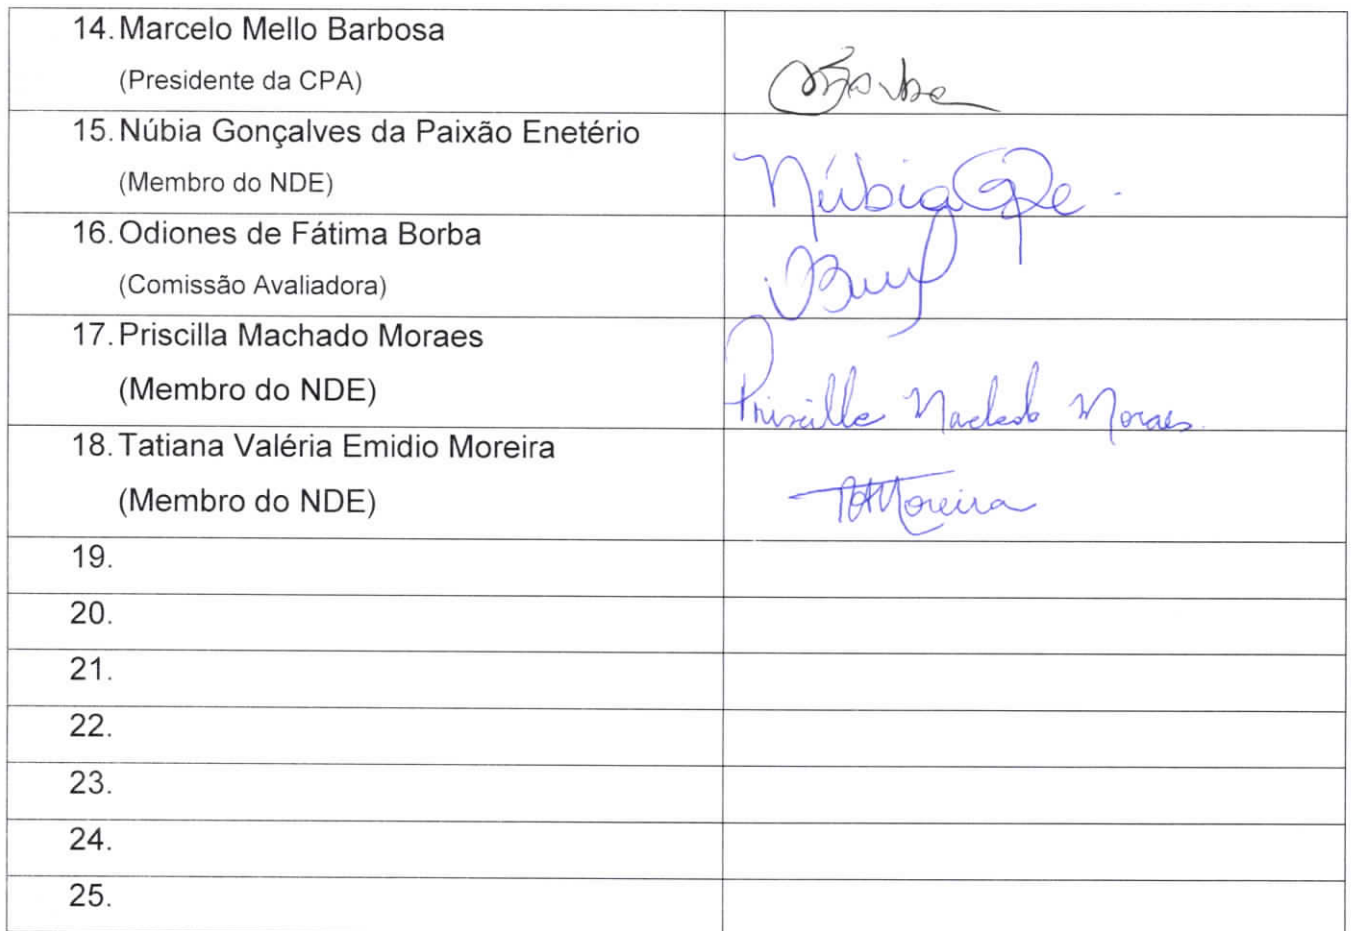 14. Marcelo Mello Barbosa
(Presidente da CPA)
15. Núbia Gonçalves da Paixão Enetério
(Membro do NDE)
Núbia
16. Odiones de Fátima Borba
(Comissão Avaliadora)
17. Priscilla Machado Moraes
(Membro do NDE)
Priscilla Machado Moraes
18. Tatiana Valéria Emidio Moreira
(Membro do NDE)
Moreira
19.
20.
21.
22.
23.
24.
25.